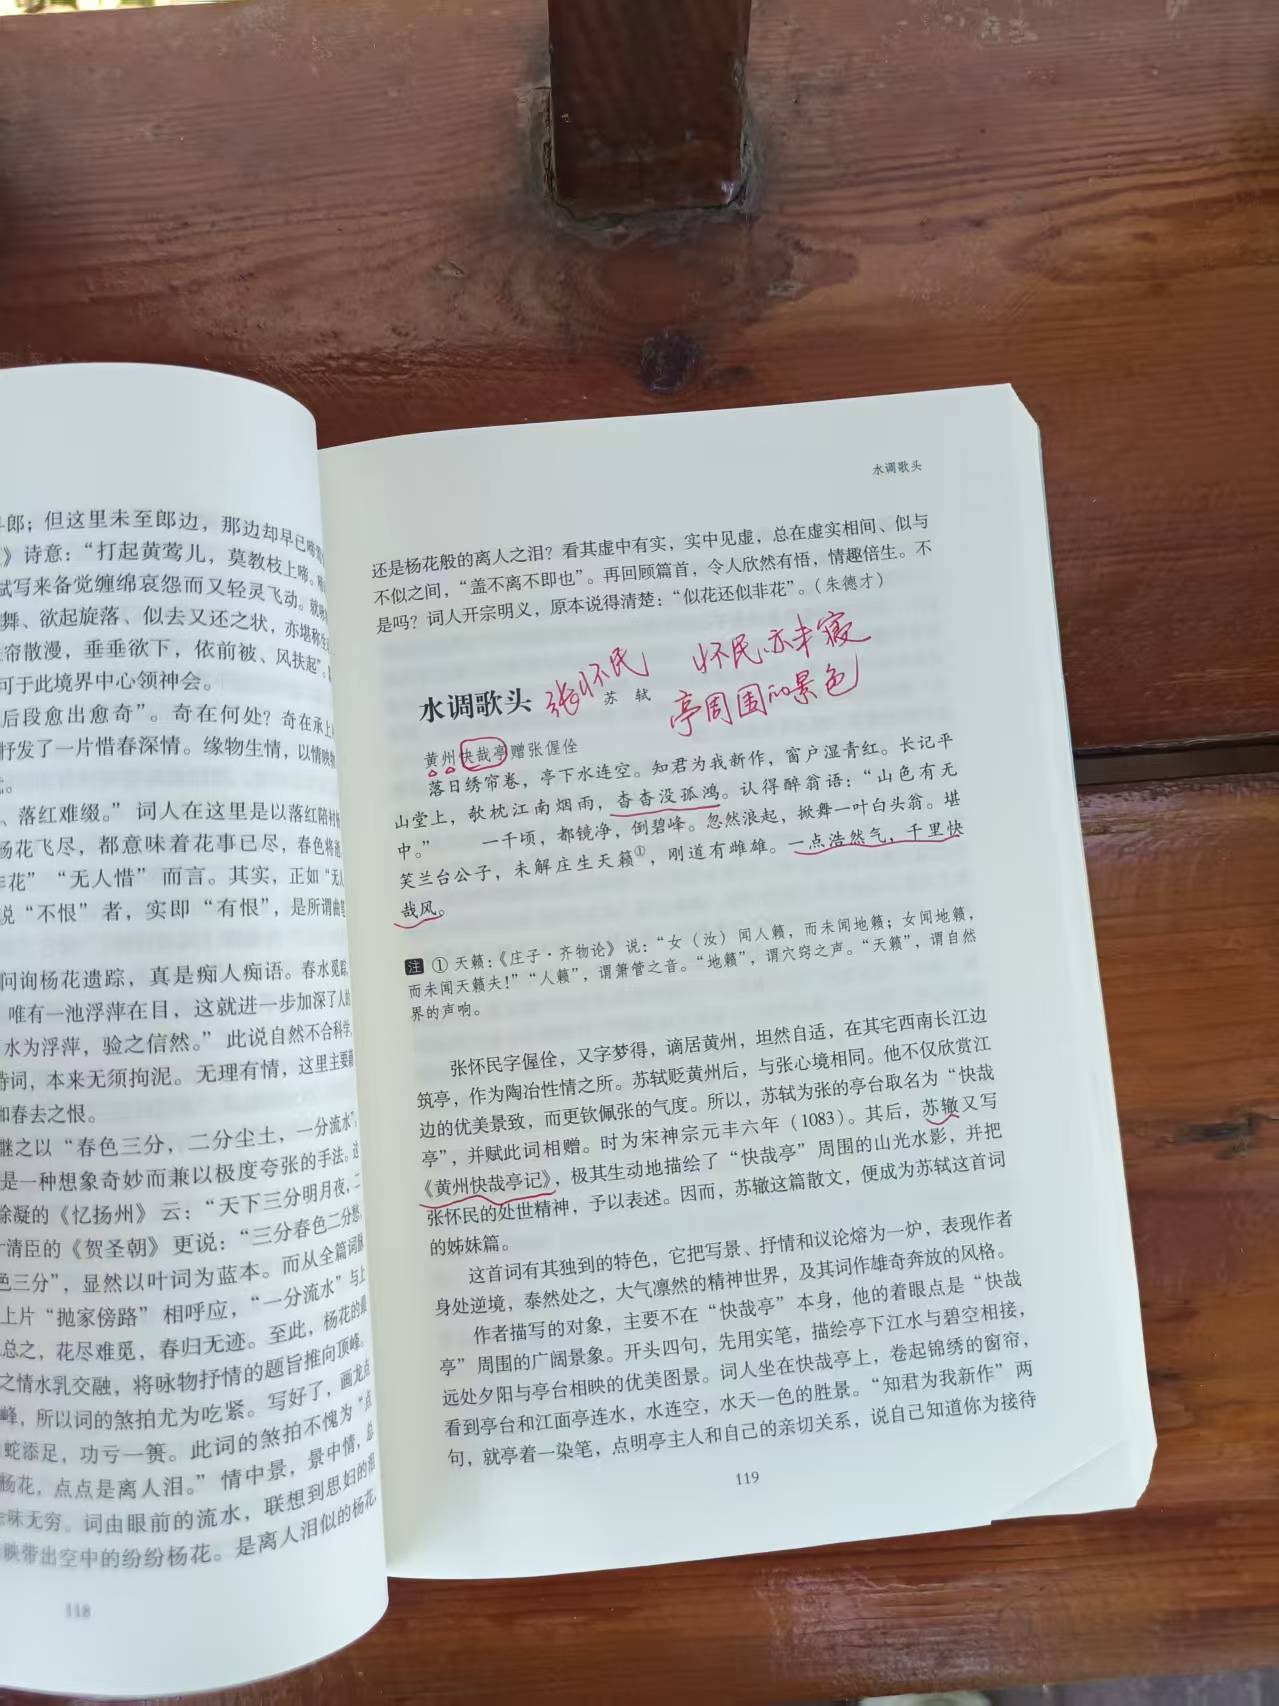 郎；但这里未至郎边，那边却早已啼
》诗意：“打起黄莺儿，莫教枝上啼。
试写来备觉缠绵哀怨而又轻灵飞动。就
舞、欲起旋落、似去又还之状，亦堪称生
帘散漫，垂垂欲下，依前被、风扶起”，
可于此境界中心领神会。
后段愈出愈奇”。奇在何处？奇在承上
抒发了一片惜春深情。缘物生情，以情映
、落红难缀。”词人在这里是以落红陪衬
杨花飞尽，都意味着花事已尽，春色将
非花”“无人惜”而言。其实，正如“无人
说“不恨”者，实即“有恨”，是所谓曲笔
问询杨花遗踪，真是痴人痴语。春水觅踪，
唯有一池浮萍在目，这就进一步加深了人的
水为浮萍，验之信然。”此说自然不合科学，
诗词，本来无须拘泥。无理有情，这里主要
和春去之恨。
继之以“春色三分，二分尘土，一分流水”，
是一种想象奇妙而兼以极度夸张的手法。这
徐凝的《忆扬州》云：“天下三分明月夜，二
叶清臣的《贺圣朝》更说：“三分春色二分愁，
色三分”，显然以叶词为蓝本。而从全篇词脉
上片“抛家傍路”相呼应，“一分流水”与上
总之，花尽难觅，春归无迹。至此，杨花的最
之情水乳交融，将咏物抒情的题旨推向顶峰。
峰，所以词的煞拍尤为吃紧。写好了，画龙点
蛇添足，功亏一篑。此词的煞拍不愧为“点
杨花，点点是离人泪。”情中景，景中情，总
味无穷。词由眼前的流水，联想到思妇的泪
映带出空中的纷纷杨花。是离人泪似的杨花，
118
水调歌头
还是杨花般的离人之泪？看其虚中有实，实中见虚，总在虚实相间、似与
不似之间，“盖不离不即也”。再回顾篇首，令人欣然有悟，情趣倍生。不
是吗？词人开宗明义，原本说得清楚：“似花还似非花”。（朱德才）
张怀民 怀民亦未寝
水调歌头 苏轼
亭周围的景色
黄州快哉亭赠张偓佺
落日绣帘卷，亭下水连空。知君为我新作，窗户湿青红。长记平
山堂上，欹枕江南烟雨，杳杳没孤鸿。认得醉翁语：“山色有无
中。” 一千顷，都镜净，倒碧峰。忽然浪起，掀舞一叶白头翁。堪
笑兰台公子，未解庄生天籁①，刚道有雌雄。一点浩然气，千里快
哉风。
注 ①天籁：《庄子·齐物论》说：“女（汝）闻人籁，而未闻地籁；女闻地籁，
而未闻天籁夫！”“人籁”，谓箫管之音。“地籁”，谓穴窍之声。“天籁”，谓自然
界的声响。
张怀民字偓佺，又字梦得，谪居黄州，坦然自适，在其宅西南长江边
筑亭，作为陶冶性情之所。苏轼贬黄州后，与张心境相同。他不仅欣赏江
边的优美景致，而更钦佩张的气度。所以，苏轼为张的亭台取名为“快哉
亭”，并赋此词相赠。时为宋神宗元丰六年（1083）。其后，苏辙又写
《黄州快哉亭记》，极其生动地描绘了“快哉亭”周围的山光水影，并把
张怀民的处世精神，予以表述。因而，苏辙这篇散文，便成为苏轼这首词
的姊妹篇。
这首词有其独到的特色，它把写景、抒情和议论熔为一炉，表现作者
身处逆境，泰然处之，大气凛然的精神世界，及其词作雄奇奔放的风格。
作者描写的对象，主要不在“快哉亭”本身，他的着眼点是“快哉
亭”周围的广阔景象。开头四句，先用实笔，描绘亭下江水与碧空相接，
远处夕阳与亭台相映的优美图景。词人坐在快哉亭上，卷起锦绣的窗帘，
看到亭台和江面亭连水，水连空，水天一色的胜景。“知君为我新作”两
句，就亭着一染笔，点明亭主人和自己的亲切关系，说自己知道你为接待
119